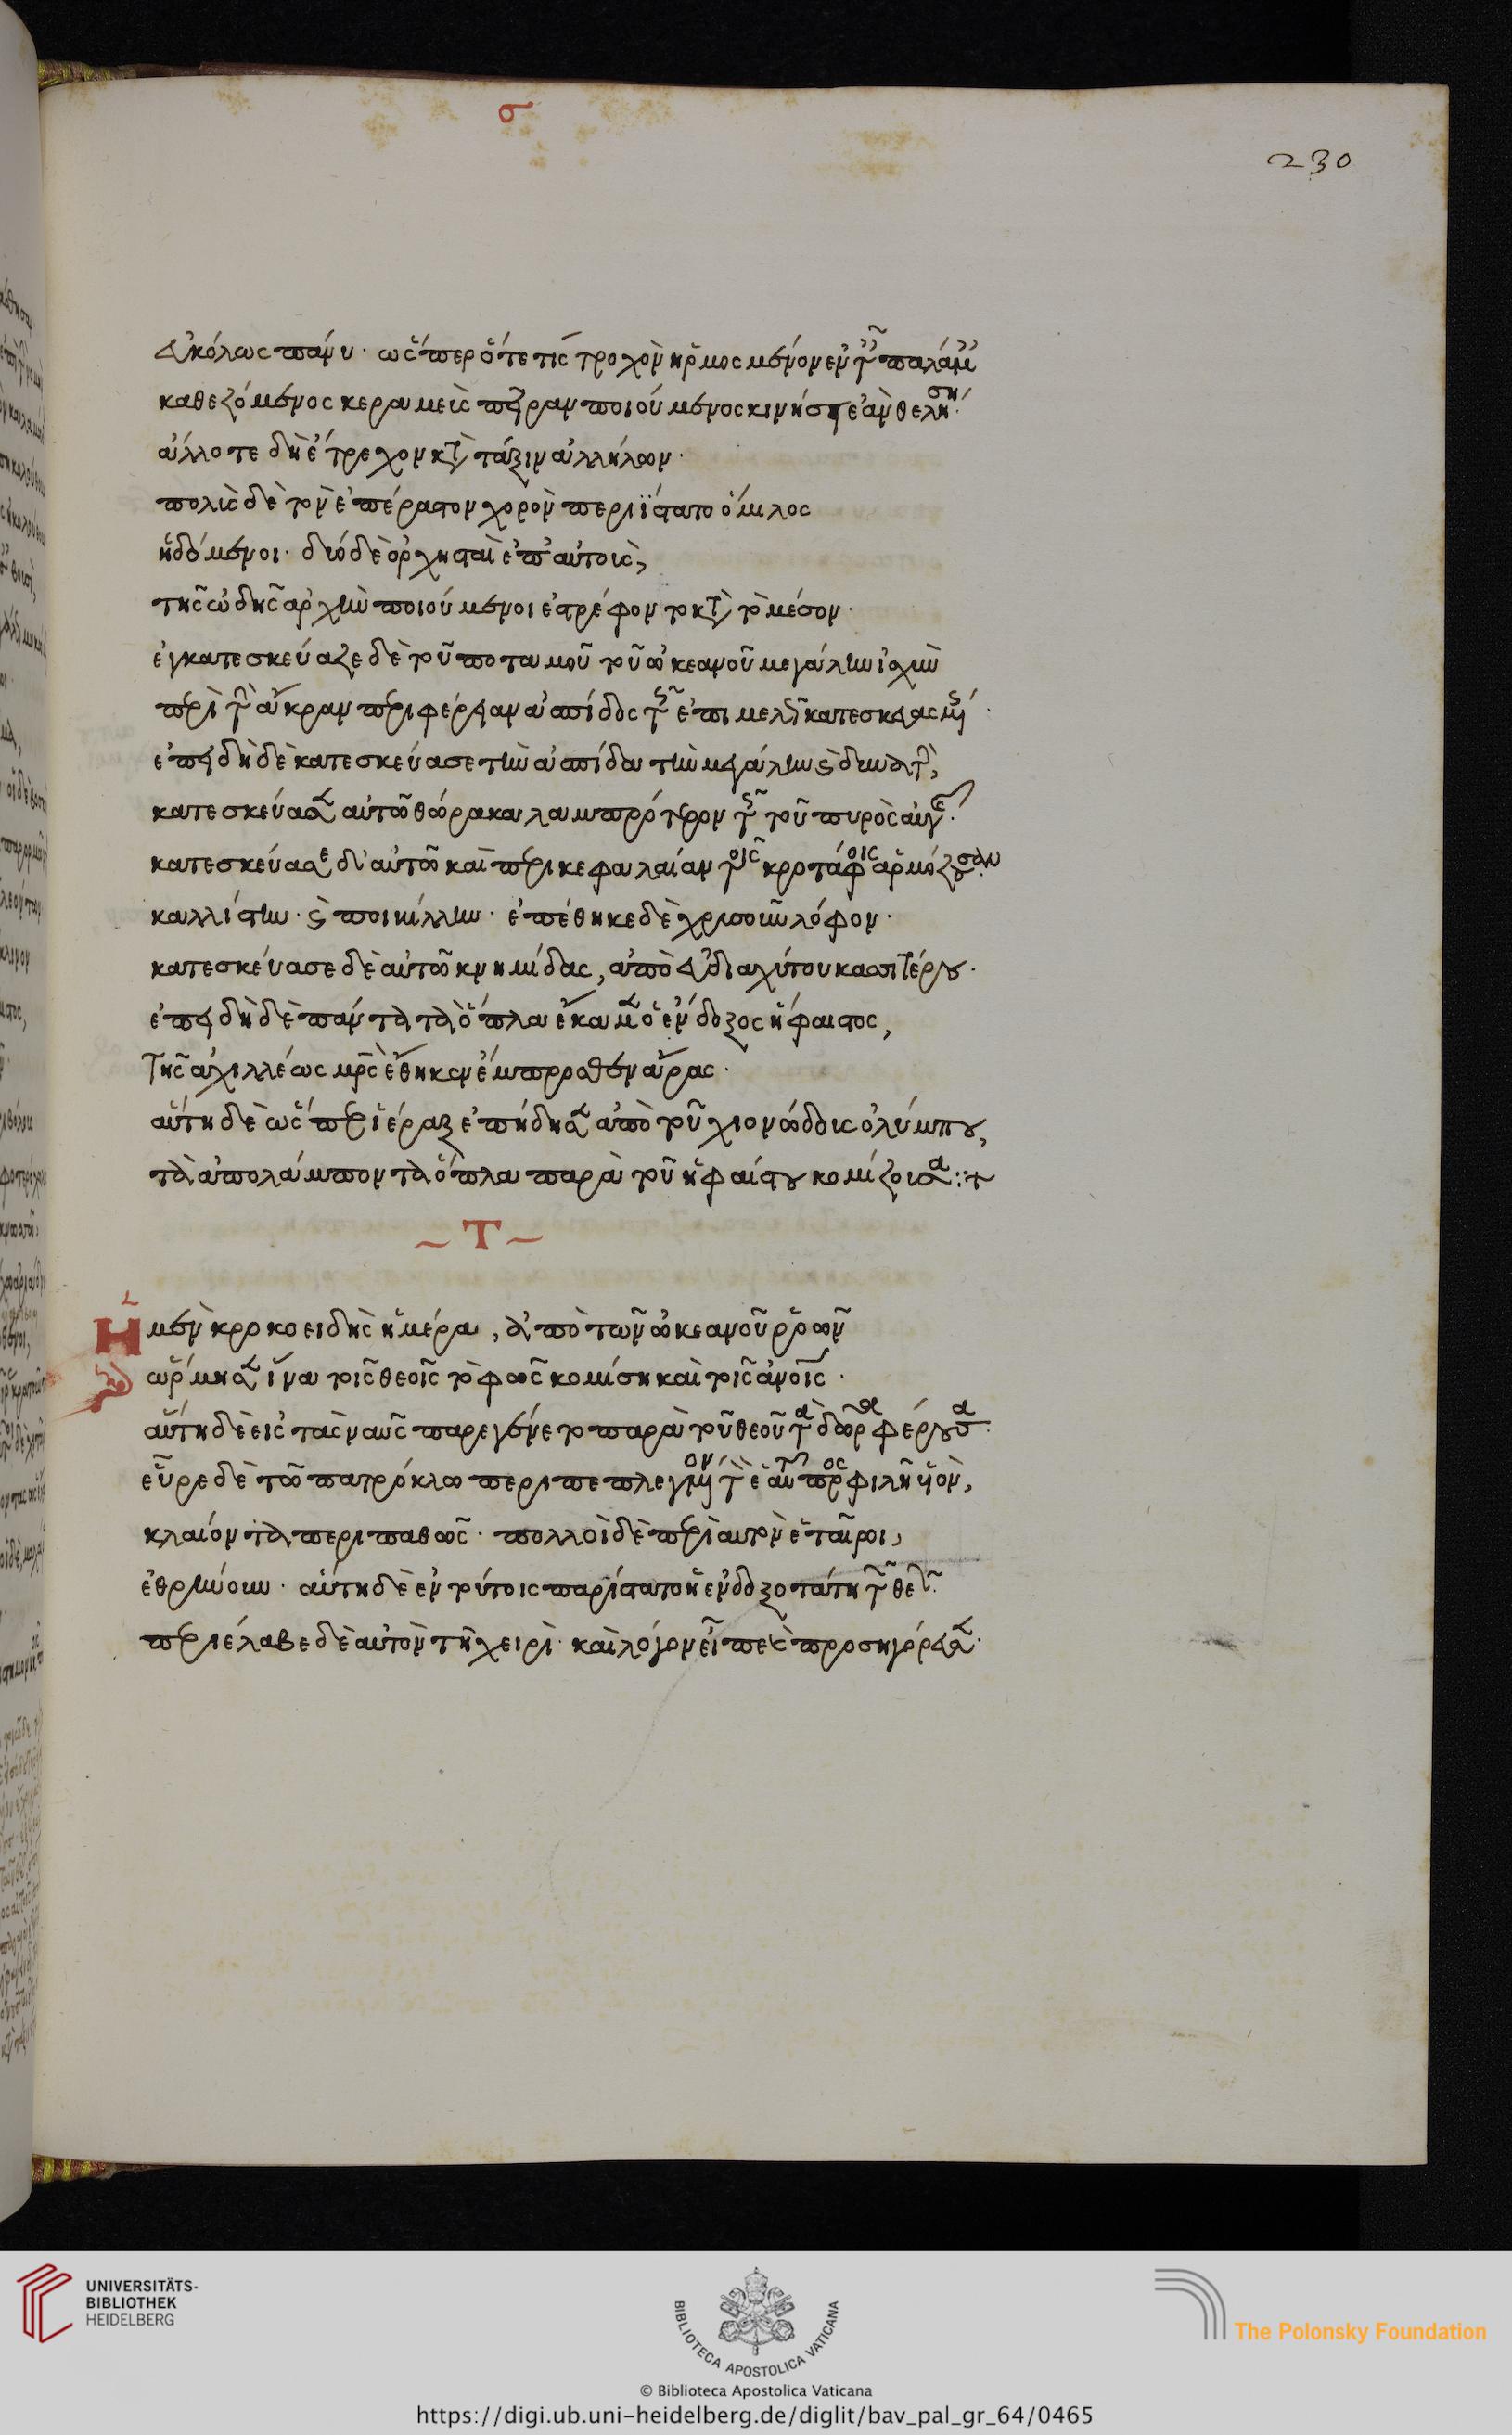 σ
230
εὐκόλως πάνυ· ὥσπερ ὅτε τίς τροχὸν ἡρμοσμένον ἐν ταῖς παλάμαις
καθεζόμενος κεραμεὺς πεῖραν ποιούμενος κινήσει ἐὰν θελήσῃ·
ἄλλοτε δὴ ἔτρεχον κατὰ τάξιν ἀλλήλων·
πολὺς δὲ τὸν ἐπέραστον χορὸν περιΐστατο ὅμιλος
ἡδόμενοι· δύο δὲ ὀρχησταὶ ἐπ' αὐτοὺς,
τῆς ὠδῆς ἀρχὴν ποιούμενοι ἐστρέφοντο κατὰ τὸ μέσον·
ἐγκατεσκεύαζε δὲ τοῦ ποταμοῦ τοῦ ὠκεανοῦ μεγάλην ἰσχὺν
περὶ τὴν ἄκραν περιφέρειαν ἀσπίδος τῆς ἐπιμελῶς κατεσκευασμένης·
ἐπειδὴ δὲ κατεσκεύασε τὴν ἀσπίδα τὴν μεγάλην καὶ δυνατὴν,
κατεσκεύασεν αὐτῶ θώρακα λαμπρότερον τῆς τοῦ πυρὸς αὐγῆς·
κατεσκεύασε δ' αὐτῶ καὶ περικεφαλαίαν τοῖς κροτάφοις ἁρμόζουσαν
καλλίστην· καὶ ποικίλην· ἐπέθηκε δὲ χρυσοῦν λόφον·
κατεσκεύασε δὲ αὐτῶ κνημίδας, ἀπὸ εὐδιαχύτου κασσιτέρου·
ἐπειδὴ δὲ πάντα τὰ ὅπλα ἔκαμεν ὁ ἔνδοξος ἥφαιστος,
τῆς ἀχιλλέως μητρὸς ἔθηκεν ἔμπροσθεν ἄρας·
αὕτη δὲ ὥσπερ ἱέραξ ἐπήδησεν ἀπὸ τοῦ χιονώδους ὀλύμπου,
τὰ ἀπολάμποντα ὅπλα παρὰ τοῦ ἡφαίστου κομίζουσα :+
~ Τ ~
Ἡ μὲν κροκοειδὴς ἡμέρα, ἀπὸ τῶν ὠκεανοῦ ῥοῶν
ὥρμησεν ἵνα τοῖς θεοῖς τὸ φῶς κομίση καὶ τοῖς ἀνοις·
αὕτη δὲ εἰς τὰς ναῦς παρεγένετο παρὰ τοῦ θεοῦ τὰ δῶρα φέρουσα·
εὗρε δὲ τῶ πατρόκλω περιπεπλεγμένον τὸν ἑαυτῆς προσφιλῆ υἱὸν,
κλαίοντα περιπαθῶς· πολλοὶ δὲ περὶ αὐτὸν ἑταῖροι,
ἐθρήνουν· αὕτη δὲ ἐν τούτοις παρίστατο ἡ ἐνδοξοτάτη τῶν θεῶν·
περιέλαβε δὲ αὐτὸν τῆ χειρὶ· καὶ λόγον εἶπε καὶ προσηγόρευσεν·
UNIVERSITÄTS-
BIBLIOTHEK
HEIDELBERG
BIBLIOTECA APOSTOLICA VATICANA
The Polonsky Foundation
© Biblioteca Apostolica Vaticana
https://digi.ub.uni-heidelberg.de/diglit/bav_pal_gr_64/0465